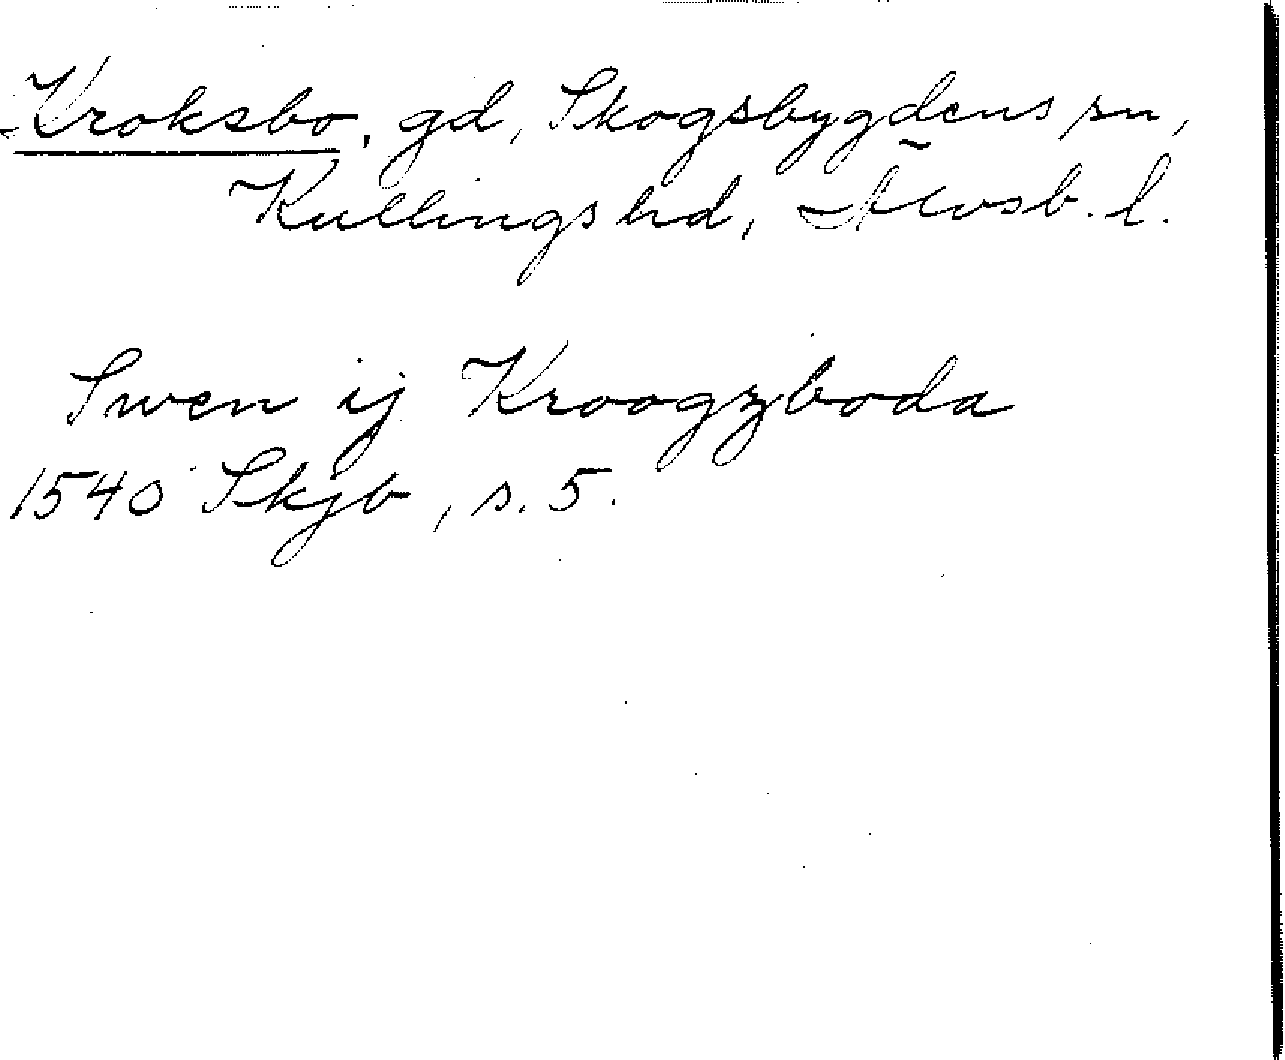 Kroksbo, gd, Skogsbygdens sn,
Kullings hd, Älvsb. l.
Swen ij Kroogzboda
1540 Skjb, s. 5.